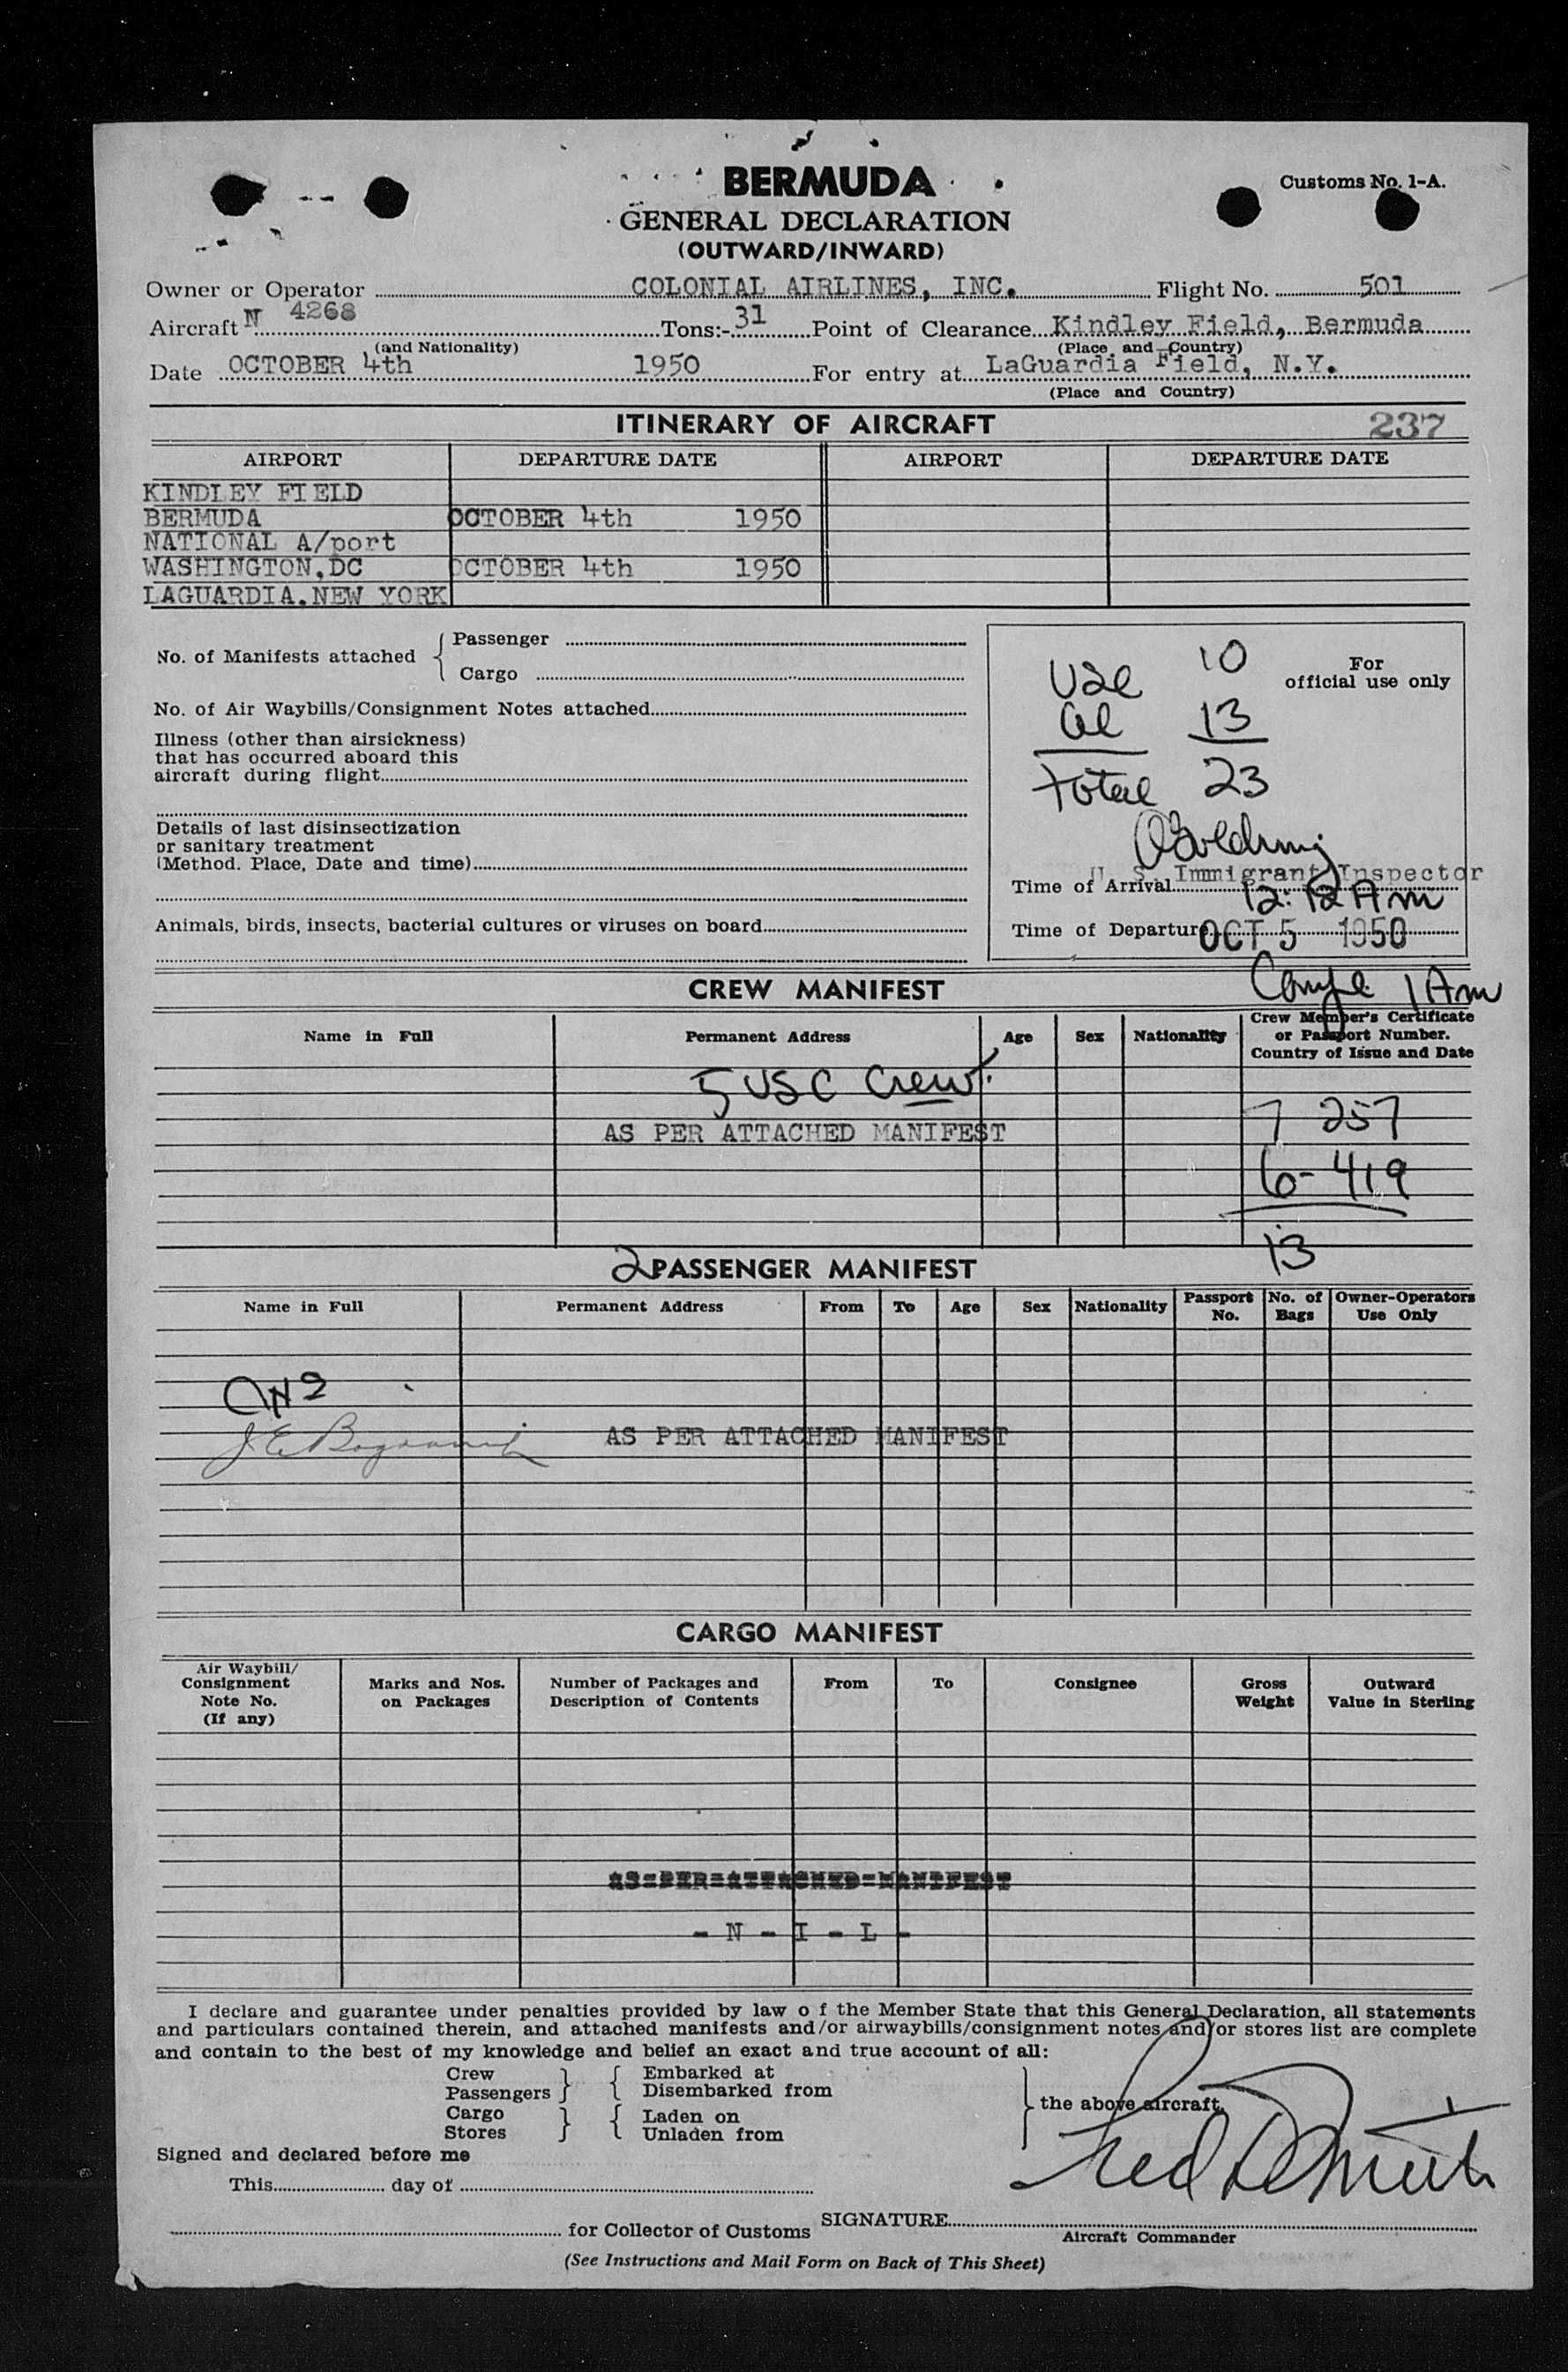 BERMUDA
Customs No. 1-A.
GENERAL DECLARATION
(OUTWARD/INWARD)
Owner or Operator COLONIAL AIRLINES, INC. Flight No. 501
Aircraft N 4268 Tons:- 31 Point of Clearance Kindley Field, Bermuda
(and Nationality) (Place and Country)
Date OCTOBER 4th 1950 For entry at LaGuardia Field, N.Y.
(Place and Country)
ITINERARY OF AIRCRAFT 237
AIRPORT DEPARTURE DATE AIRPORT DEPARTURE DATE
KINDLEY FIELD
BERMUDA OCTOBER 4th 1950
NATIONAL A/port
WASHINGTON,DC OCTOBER 4th 1950
LAGUARDIA.NEW YORK
No. of Manifests attached { Passenger
Cargo
No. of Air Waybills/Consignment Notes attached
Illness (other than airsickness)
that has occurred aboard this
aircraft during flight
Details of last disinsectization
or sanitary treatment
(Method. Place, Date and time)
Animals, birds, insects, bacterial cultures or viruses on board
For
official use only
USC 10
al 13
Total 23
U. S. Immigrant Inspector
Time of Arrival 12:12 Am
Time of Departure OCT 5 1950
1 Am
CREW MANIFEST
Name in Full Permanent Address Age Sex Nationality Crew Member's Certificate
or Passport Number.
Country of Issue and Date
5 USC Crew
7 257
AS PER ATTACHED MANIFEST
6-419
13
2 PASSENGER MANIFEST
Name in Full Permanent Address From To Age Sex Nationality Passport No. No. of Bags Owner-Operators Use Only
AS PER ATTACHED MANIFEST
CARGO MANIFEST
Air Waybill/
Consignment
Note No.
(If any)
Marks and Nos.
on Packages
Number of Packages and
Description of Contents
From To Consignee
Gross
Weight
Outward
Value in Sterling
AS=PER=ATTACHED=MANIFEST
- N - I - L -
I declare and guarantee under penalties provided by law o f the Member State that this General Declaration, all statements
and particulars contained therein, and attached manifests and/or airwaybills/consignment notes and/or stores list are complete
and contain to the best of my knowledge and belief an exact and true account of all:
Crew } { Embarked at
Passengers } { Disembarked from
} the above aircraft.
Cargo } { Laden on
Stores } { Unladen from
Signed and declared before me
This day of
for Collector of Customs SIGNATURE
Aircraft Commander
(See Instructions and Mail Form on Back of This Sheet)